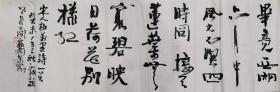 畢竟西湖
六月中
風光不與四
時同接天
蓮葉無
窮碧映
日荷花別
樣紅
宋人楊萬里詩一首